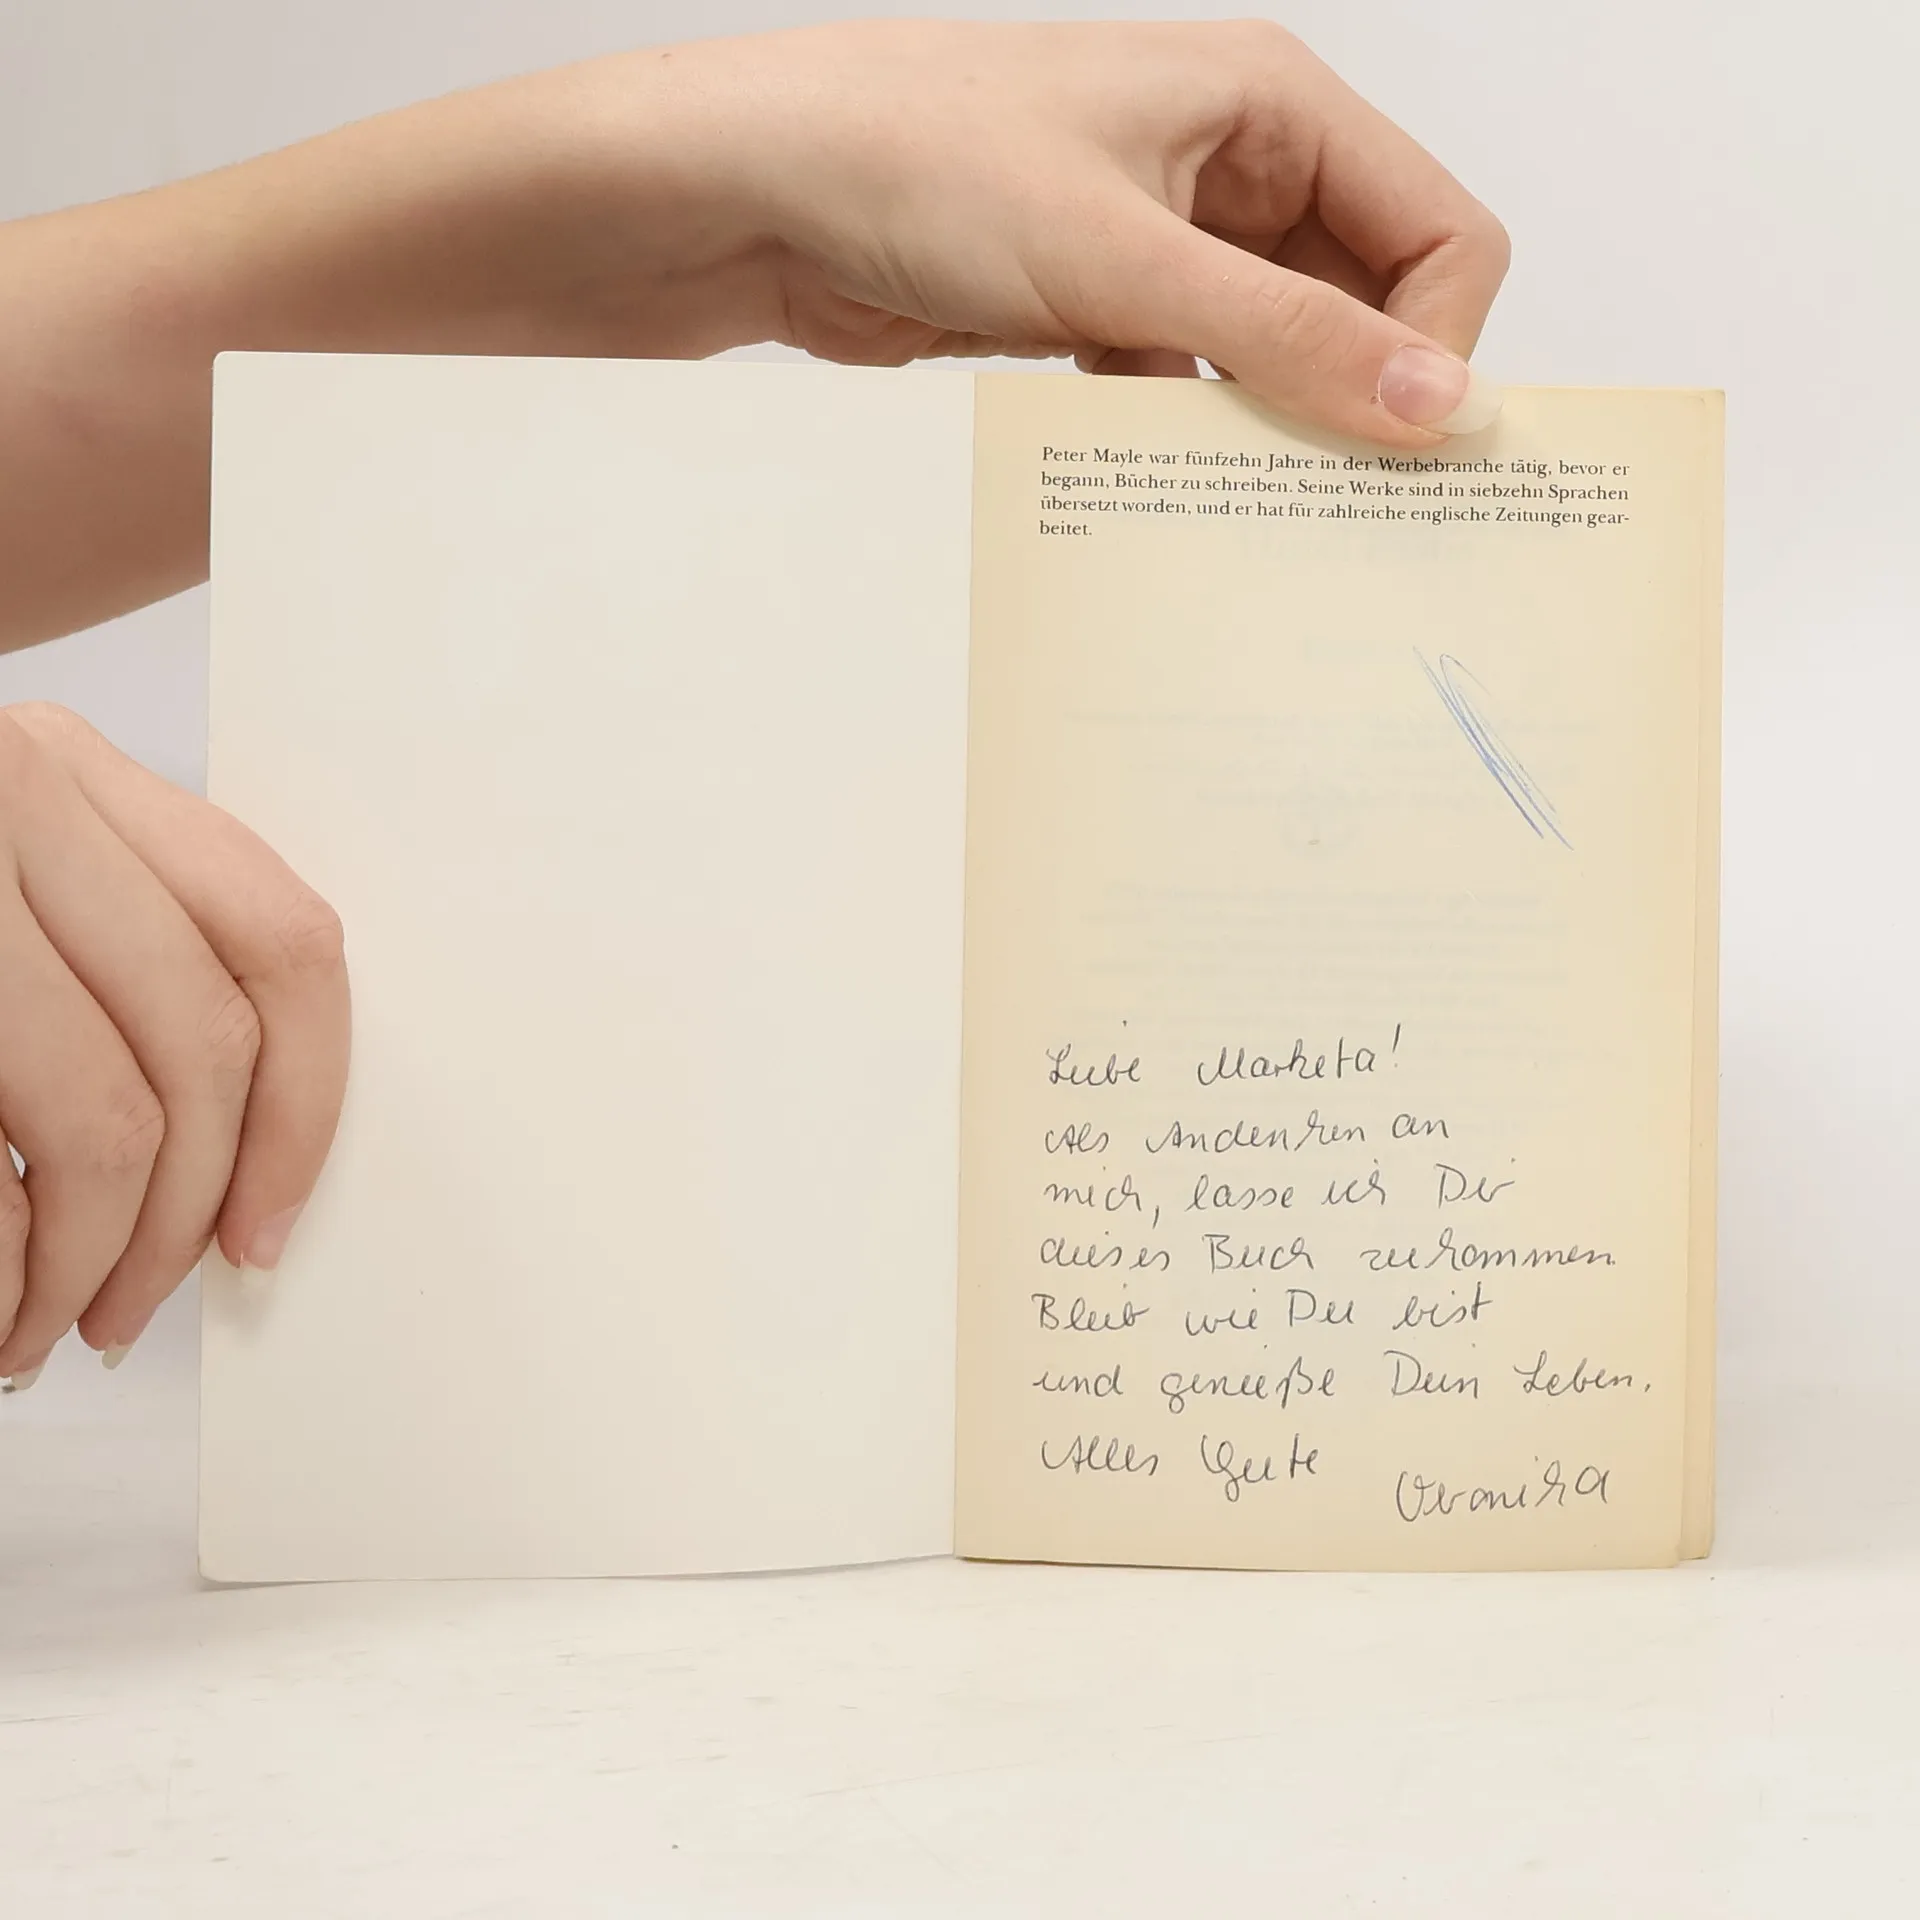 Peter Mayle war fünfzehn Jahre in der Werbebranche tätig, bevor er
begann, Bücher zu schreiben. Seine Werke sind in siebzehn Sprachen
übersetzt worden, und er hat für zahlreiche englische Zeitungen gear-
beitet.
Liebe Marketa!
Als Andenken an
mich, lasse ich Dir
dieses Buch zukommen.
Bleib wie Du bist
und genieße Dein Leben.
Alles Gute
Veronika